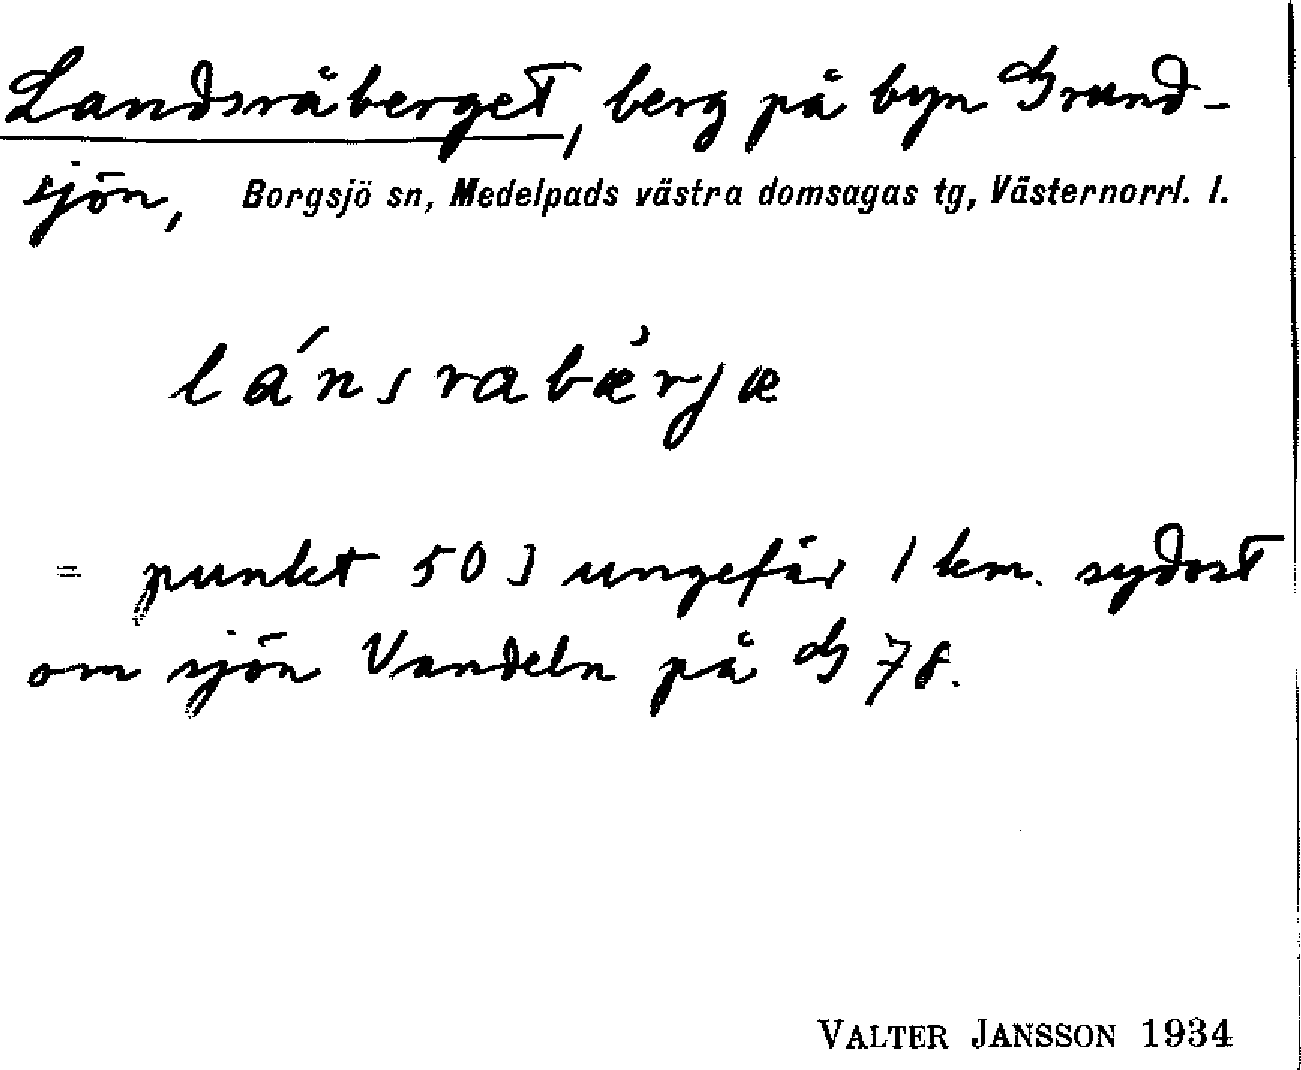 Landsråberget, berg på byn Grund-
sjön, Borgsjö sn, Medelpads västra domsagas tg, Västernorrl. l.
lánsrabæ̀rjæ
= punkt 503 ungefär 1 km. sydost
om sjön Vandeln på G 78.
VALTER JANSSON 1934